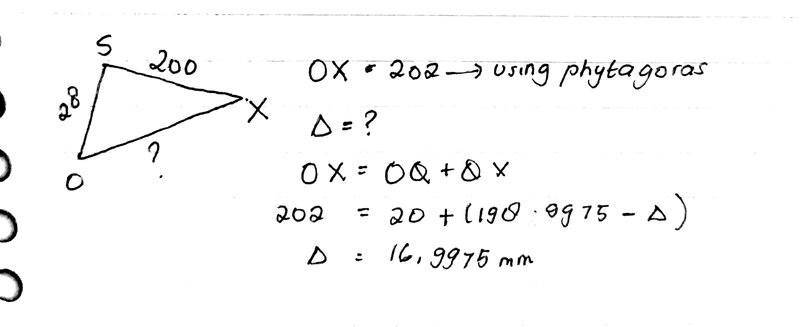 S
200
28
X
?
O
OX = 202 → using phytagoras
Δ = ?
OX = OQ + QX
202 = 20 + (198.9975 - Δ)
Δ = 16,9975 mm